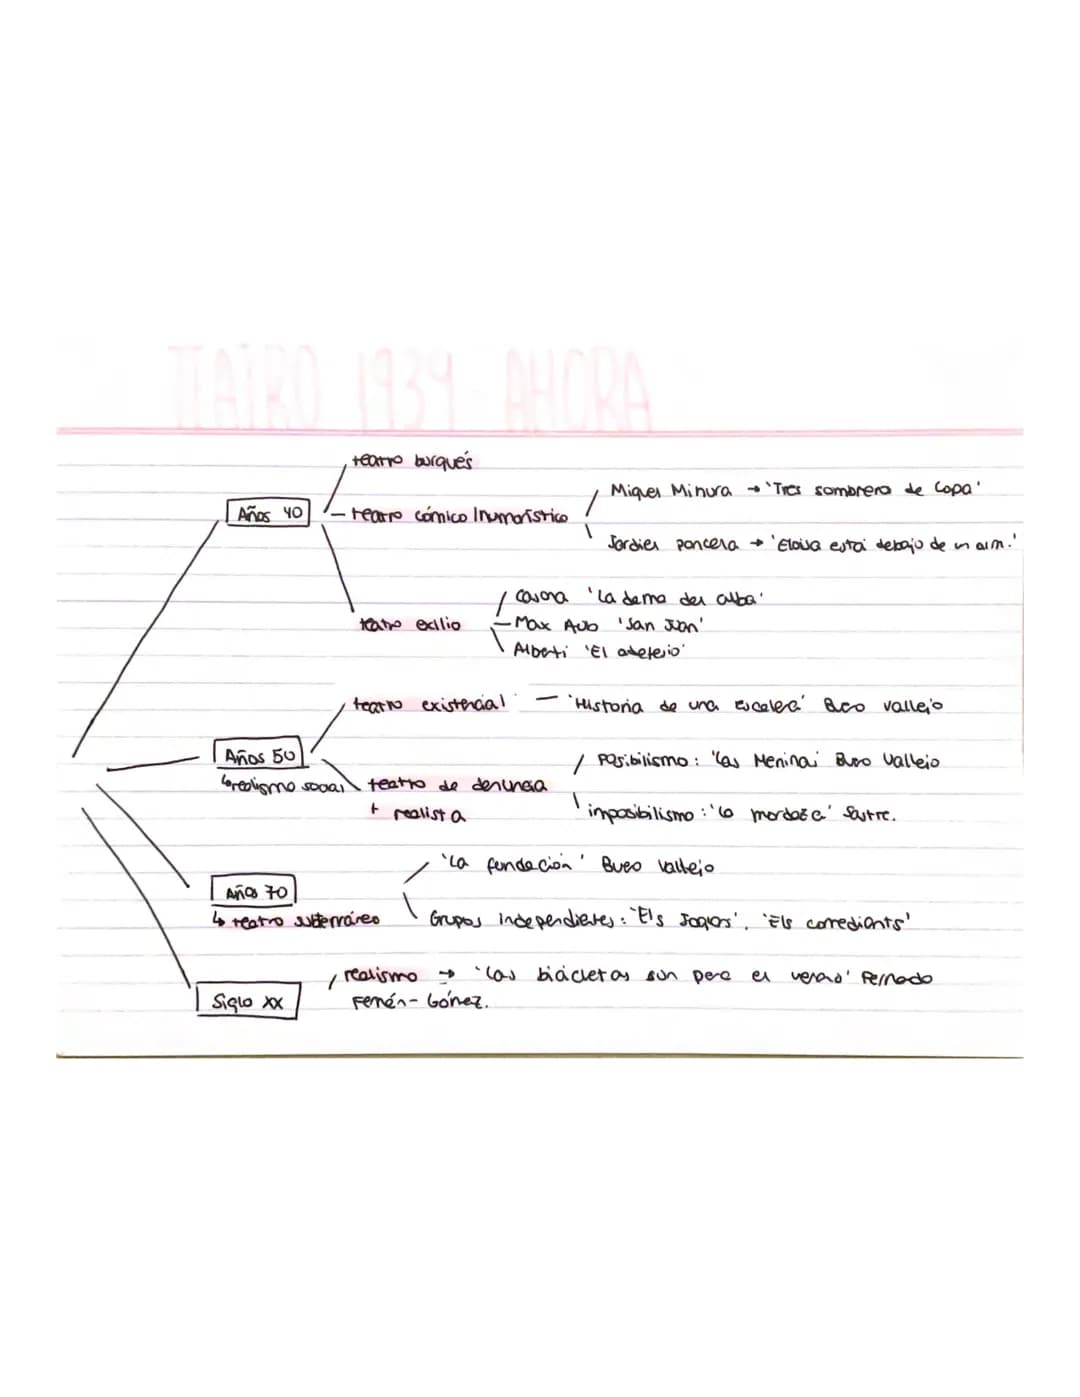 TEATRO 1939 - AHORA
teatro burgués
Miguel Minura → 'Tres sombrero de Copa'
Años 40 - teatro cómico humorístico
Jardiel poncela → 'Eloisa está debajo de un alm.'
Casona 'La dama del alba'
teatro exilio - Max Aub 'San Juan'
Alberti 'El adefesio'
teatro existencial - 'Historia de una escalera' Buero Vallejo
Años 50
Posibilismo: 'Las Meninas' Buero Vallejo
↳ realismo social teatro de denuncia
+ realista
imposibilismo: 'la mordaza' Sastre.
'La fundación' Buero Vallejo
Años 70
↳ teatro subterráneo Grupos independientes: 'Els Joglars', 'Els comediants'
realismo → 'Las bicicletas son para el verano' Fernado
Siglo XX Fernén-Gómez.